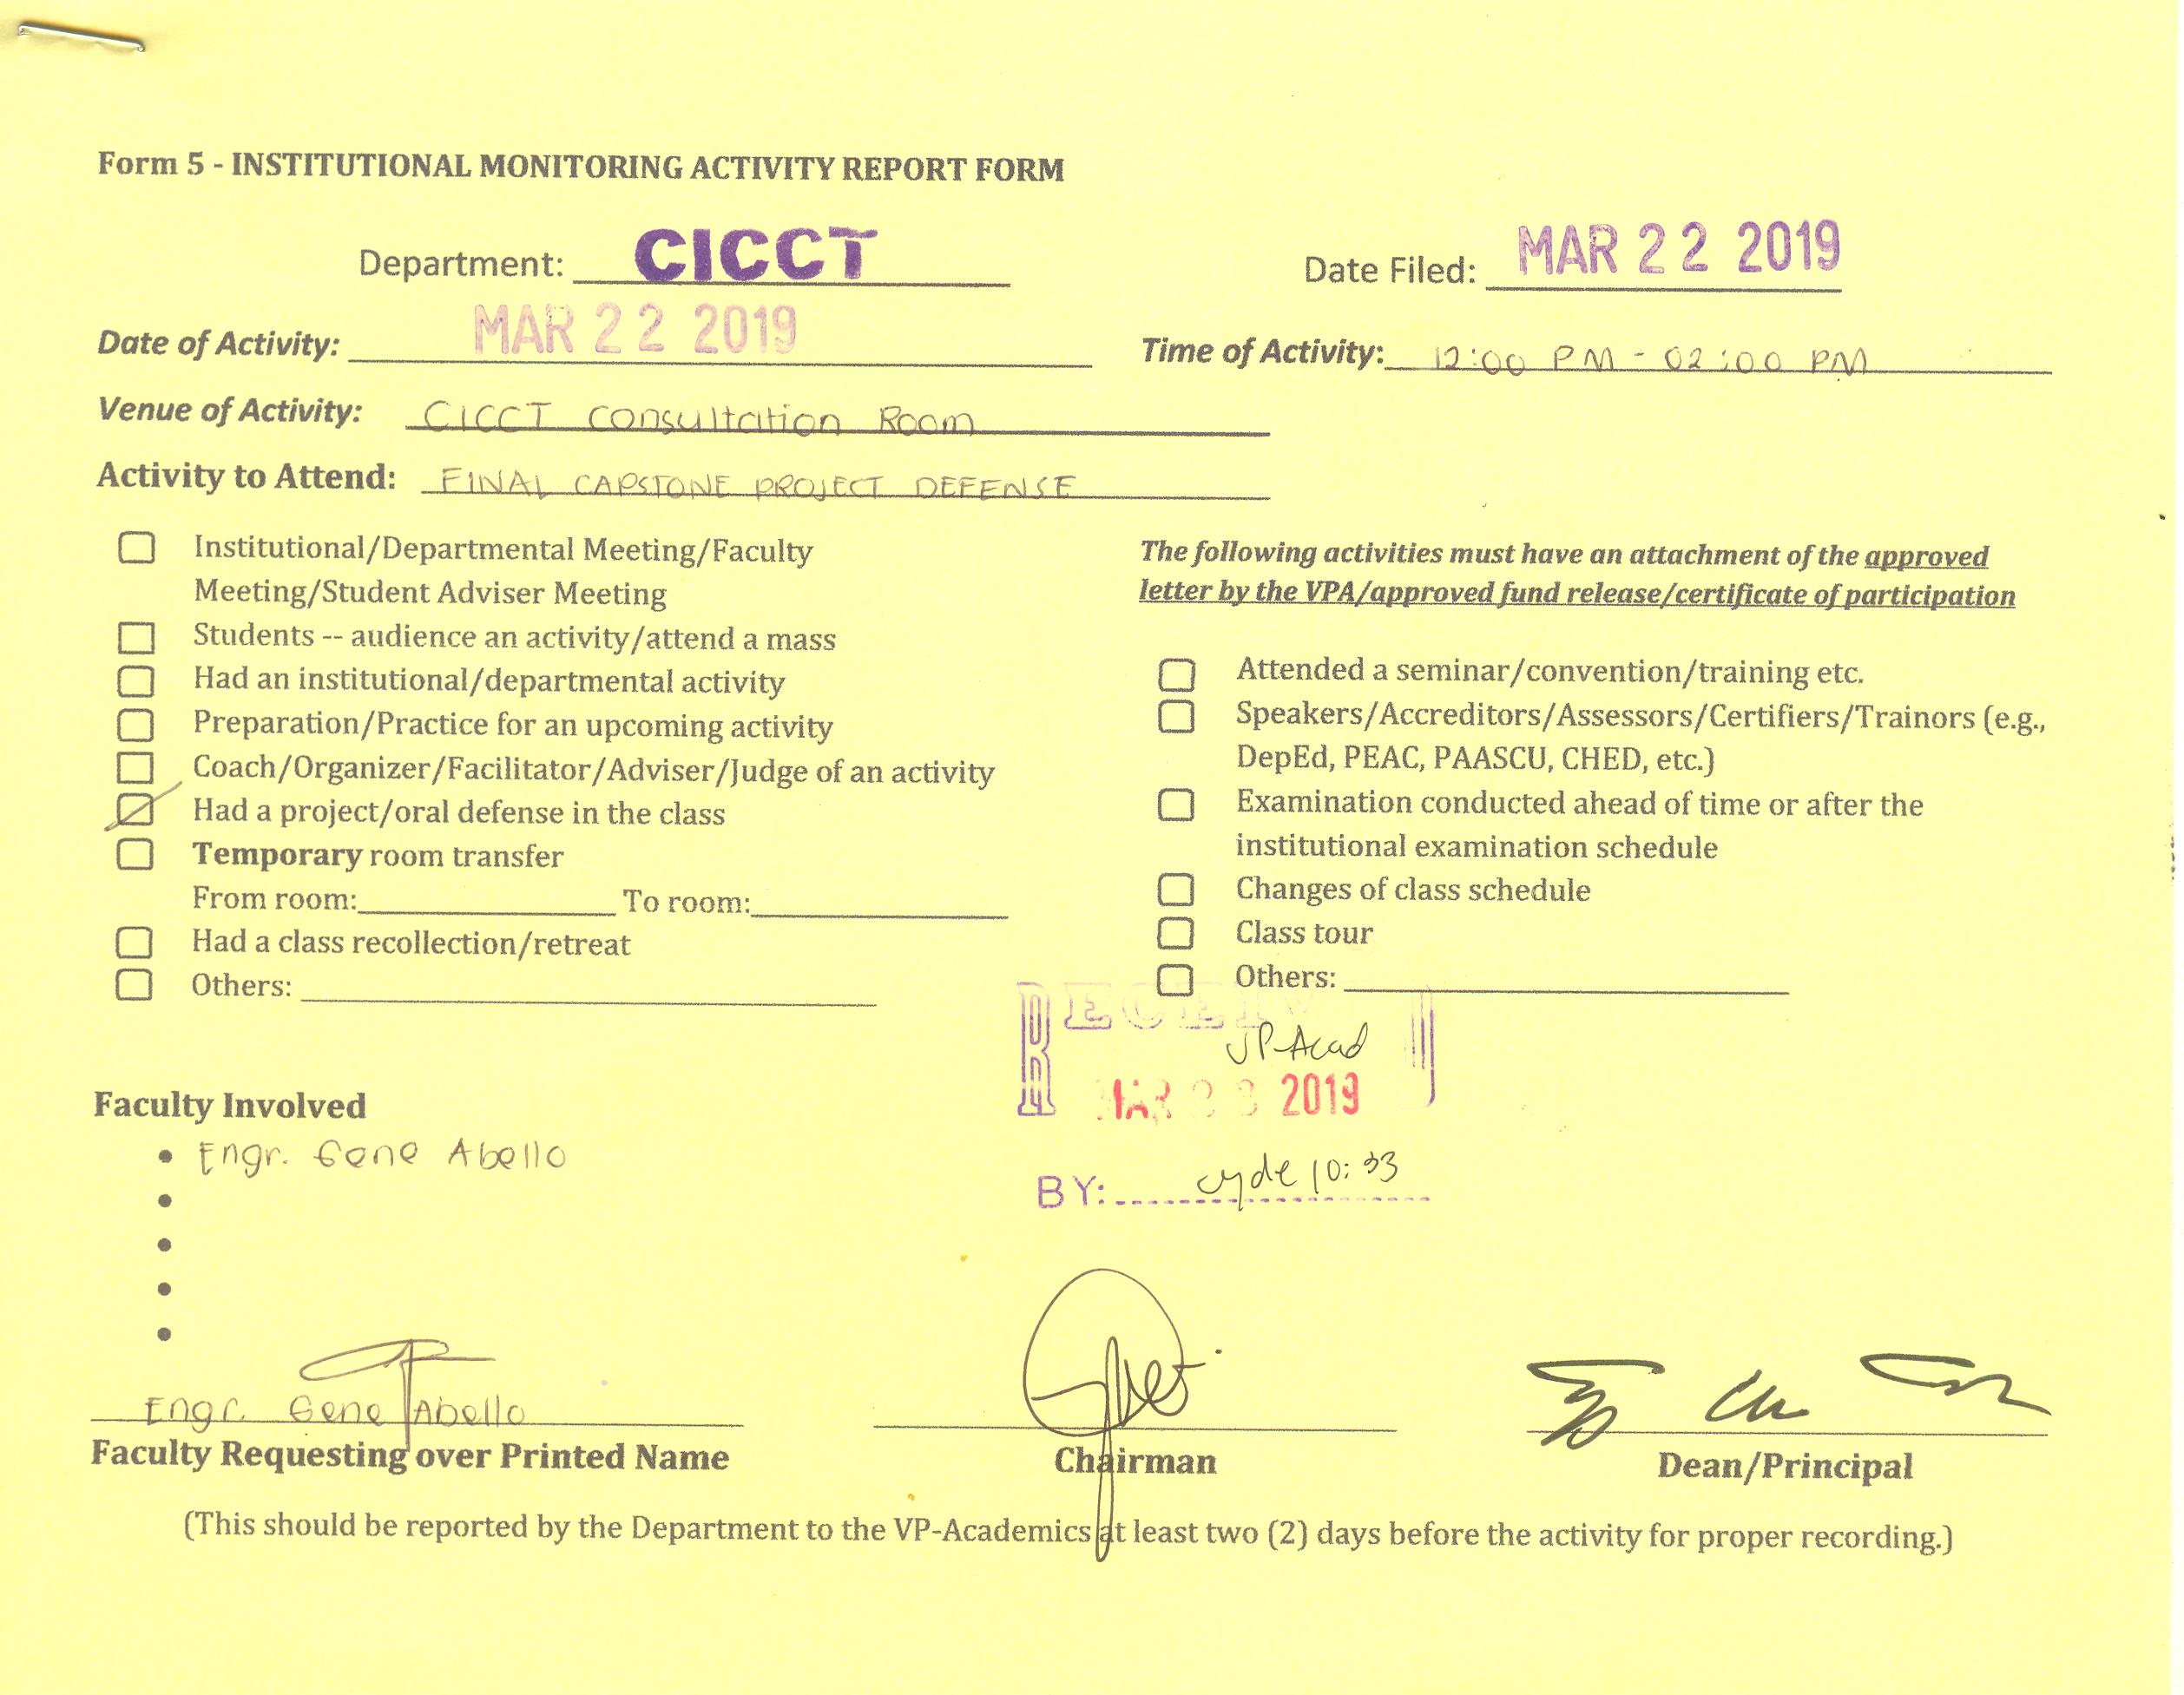 Form 5 - INSTITUTIONAL MONITORING ACTIVITY REPORT FORM
Department: CICCT
Date Filed: MAR 22 2019
Date of Activity: MAR 22 2019
Time of Activity: 12:00 PM - 02:00 PM
Venue of Activity: CICCT Consultation Room
Activity to Attend: FINAL CAPSTONE PROJECT DEFENSE
Institutional/Departmental Meeting/Faculty
Meeting/Student Adviser Meeting
Students -- audience an activity/attend a mass
Had an institutional/departmental activity
Preparation/Practice for an upcoming activity
Coach/Organizer/Facilitator/Adviser/Judge of an activity
Had a project/oral defense in the class
Temporary room transfer
From room: To room:
Had a class recollection/retreat
Others:
The following activities must have an attachment of the approved
letter by the VPA/approved fund release/certificate of participation
Attended a seminar/convention/training etc.
Speakers/Accreditors/Assessors/Certifiers/Trainors (e.g.,
DepEd, PEAC, PAASCU, CHED, etc.)
Examination conducted ahead of time or after the
institutional examination schedule
Changes of class schedule
Class tour
Others:
VP-Acad
MAR 2019
BY: 10:33
Faculty Involved
Engr. Gene Abello
Engr. Gene Abello
Faculty Requesting over Printed Name
Chairman
Dean/Principal
(This should be reported by the Department to the VP-Academics at least two (2) days before the activity for proper recording.)